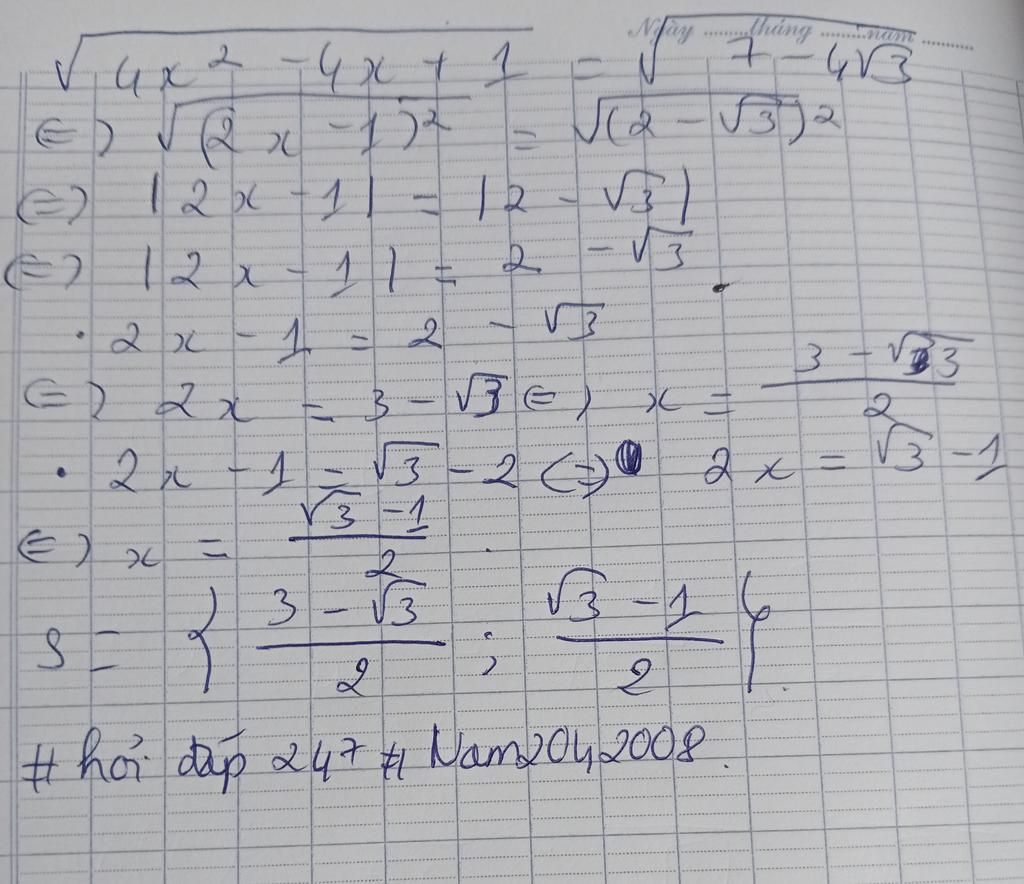 Ngày ......... tháng ......... năm .........
√(4x² - 4x + 1) = √(7 - 4√3)
⇔ √((2x - 1)²) = √((2 - √3)²)
⇔ |2x - 1| = |2 - √3|
⇔ |2x - 1| = 2 - √3
• 2x - 1 = 2 - √3
⇔ 2x = 3 - √3 ⇔ x = (3 - √3)/2
• 2x - 1 = √3 - 2 ⇔ 2x = √3 - 1
⇔ x = (√3 - 1)/2
S = { (3 - √3)/2 ; (√3 - 1)/2 }
# hỏi đáp 247 # Nam2042008.